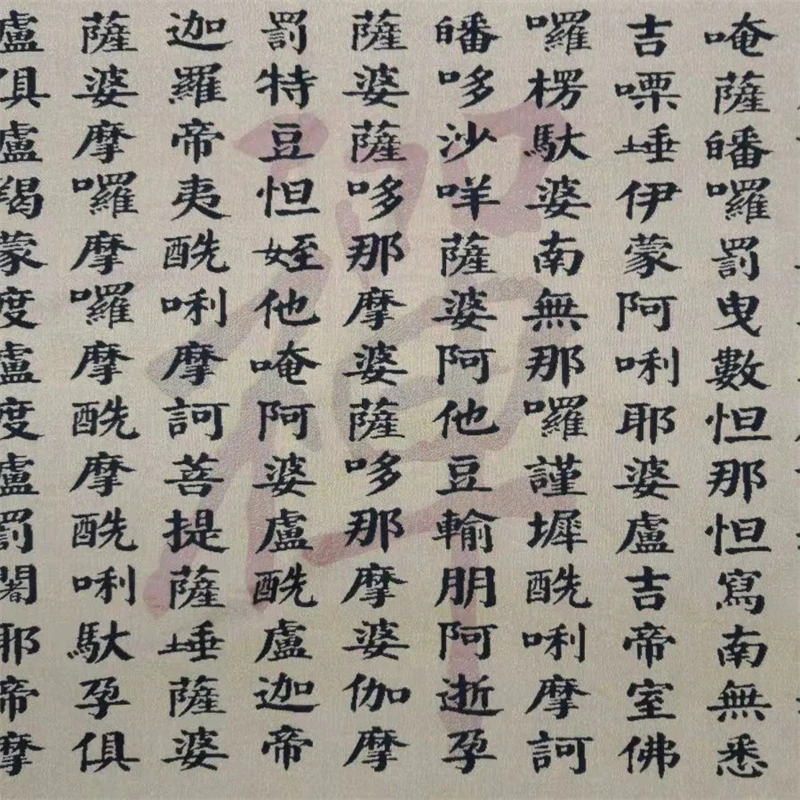 唵薩皤囉罰曳數怛那怛寫南無悉
吉嘌埵伊蒙阿唎耶婆盧吉帝室佛
囉楞馱婆南無那囉謹墀酰唎摩訶
皤哆沙咩薩婆阿他豆輸朋阿逝孕
薩婆薩哆那摩婆薩哆那摩婆伽摩
罰特豆怛姪他唵阿婆盧酰盧迦帝
迦羅帝夷酰唎摩訶菩提薩埵薩婆
薩婆摩囉摩囉摩酰摩酰唎馱孕俱
盧俱盧羯蒙度盧度盧罰闍耶帝摩
禪